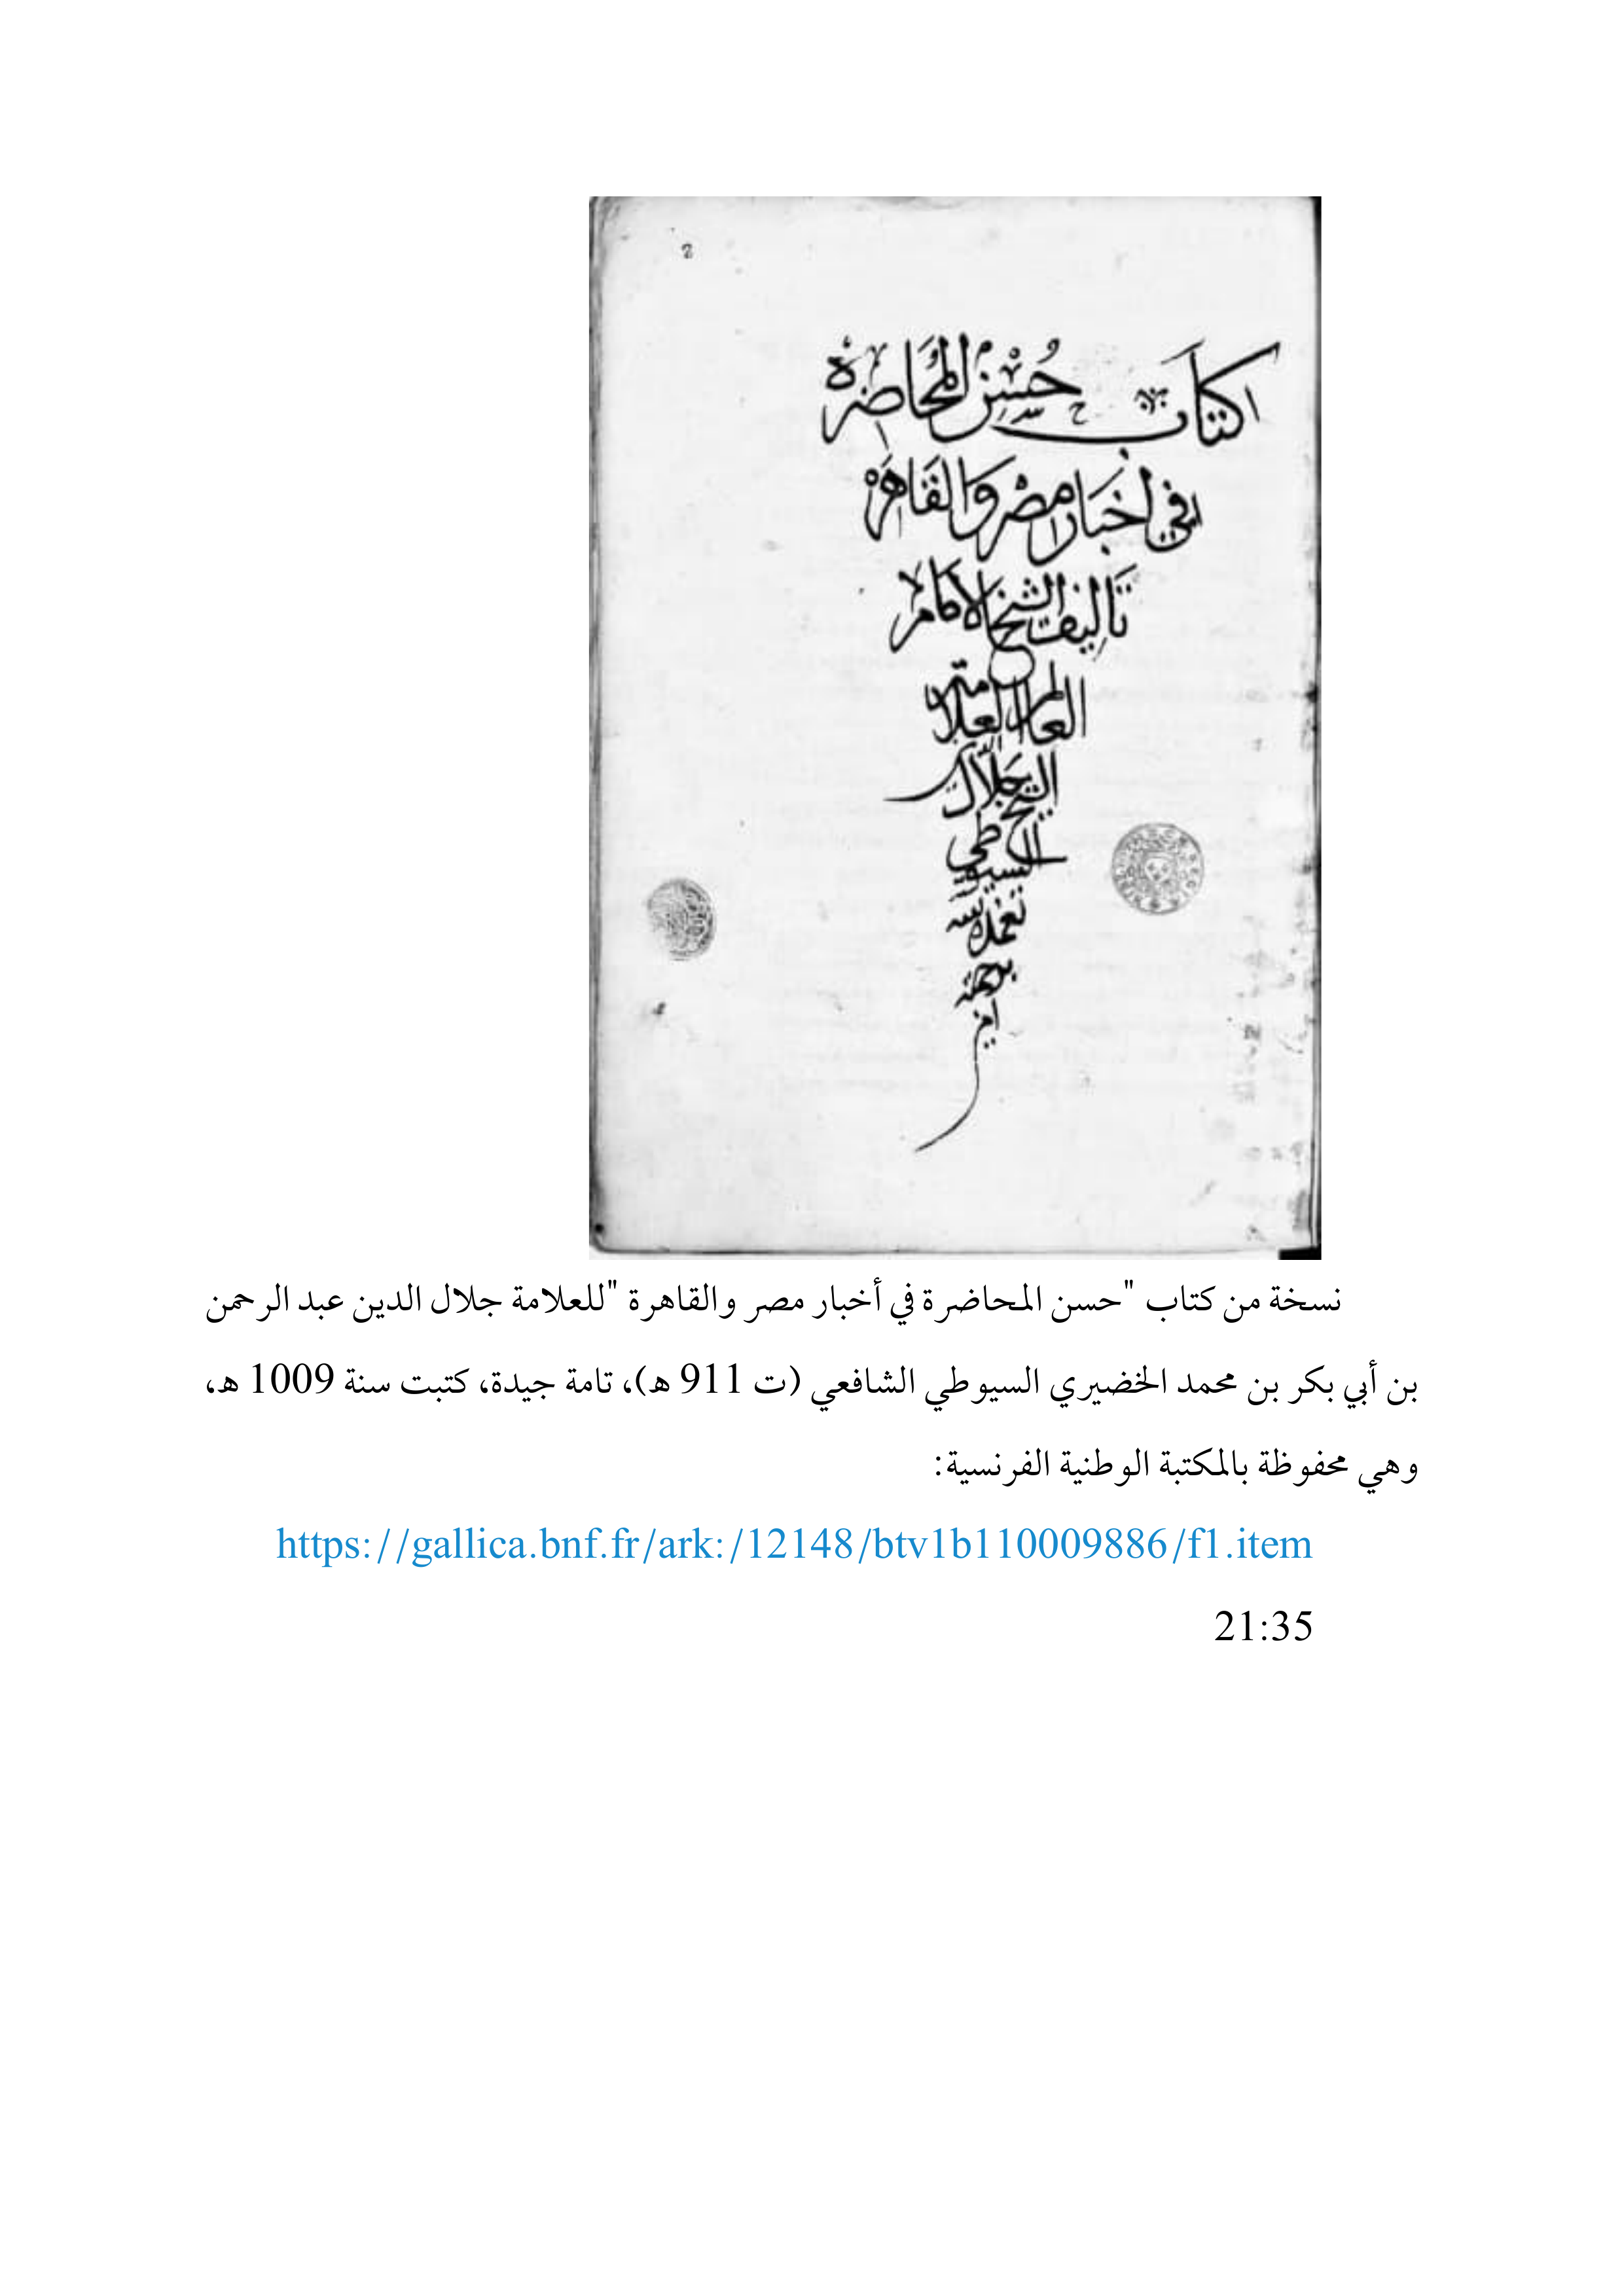 2
كتاب حُسْن المُحَاضرة
في أخبَار مصْر وَالقَاهرَة
تَأليف الشيخ الامام
العالم العلامة
الشيخ جلال
السيوطي
تغمده الله
برحمته
نسخة من كتاب "حسن المحاضرة في أخبار مصر والقاهرة "للعلامة جلال الدين عبد الرحمن
بن أبي بكر بن محمد الخضيري السيوطي الشافعي (ت 911 هـ)، تامة جيدة، كتبت سنة 1009 هـ،
وهي محفوظة بالمكتبة الوطنية الفرنسية:
https://gallica.bnf.fr/ark:/12148/btv1b110009886/f1.item
21:35